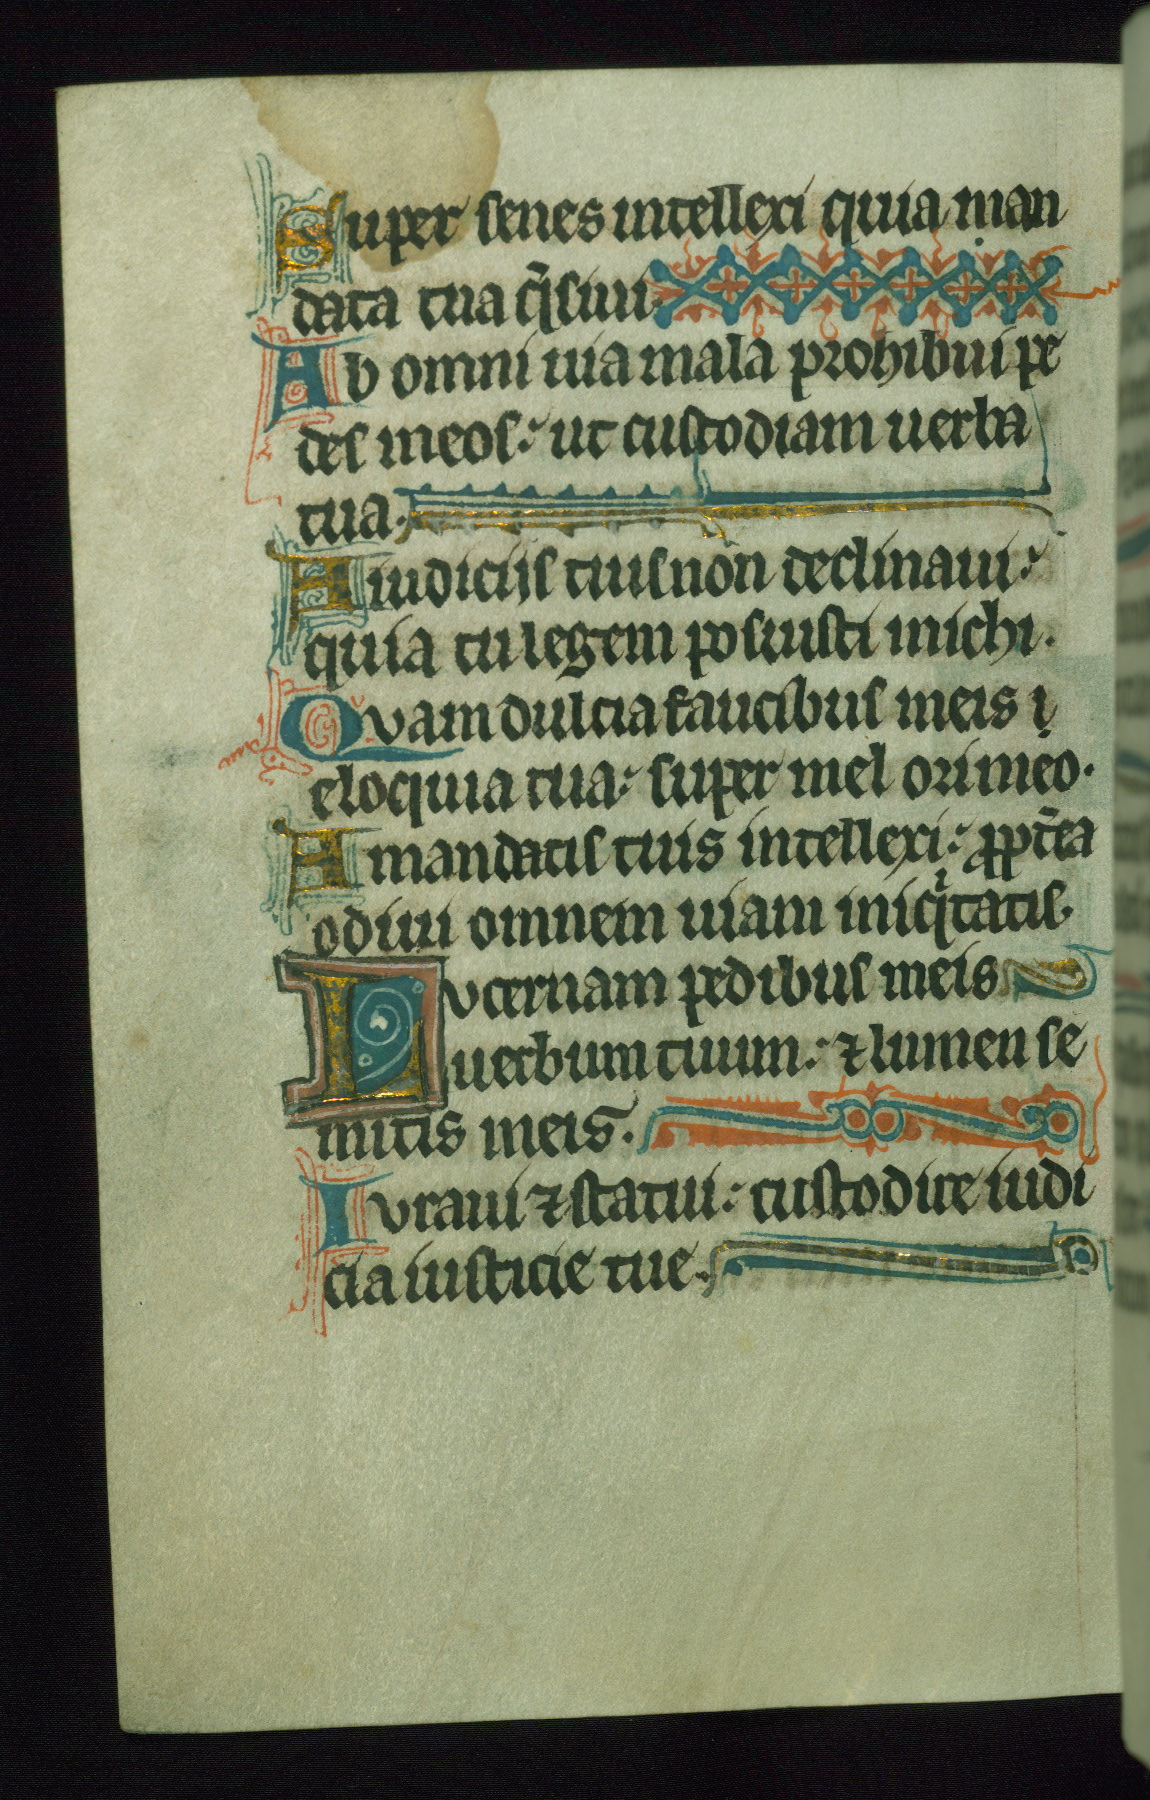 Super senes intellexi quia man
data tua q̄siui.
Ab omni uia mala prohibui pe
des meos: ut custodiam uerba
tua.
A iudiciis tuis non declinaui:
quia tu legem posuisti michi.
Quam dulcia faucibus meis
eloquia tua: super mel ori meo.
A mandatis tuis intellexi: ꝓpt̄ea
odiui omnem uiam iniqͥtatis.
Lucernam pedibus meis
uerbum tuum: ⁊ lumen se
mitis meis.
Iuraui ⁊ statui: custodire iudi
cia iusticie tue.